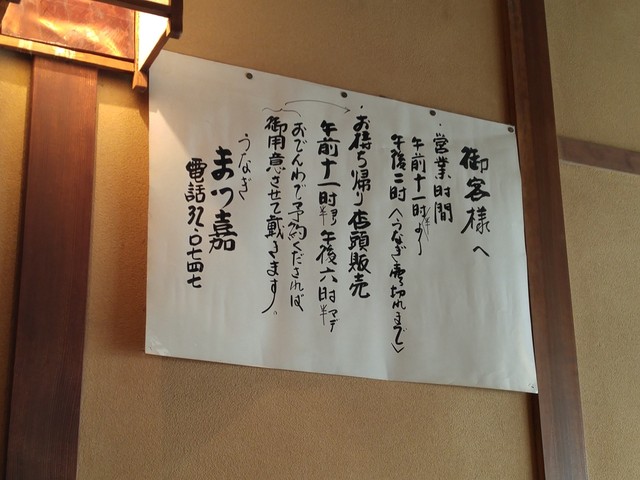 御客様へ
・営業時間
午前十一時半より
午後二時(うなぎ売切れまで)
・お持ち帰り店頭販売
午前十一時半ヨリ午後六時半マデ
おでんわで予約くだされば
御用意させて戴きます。
うなぎ
まつ嘉
電話32・0747